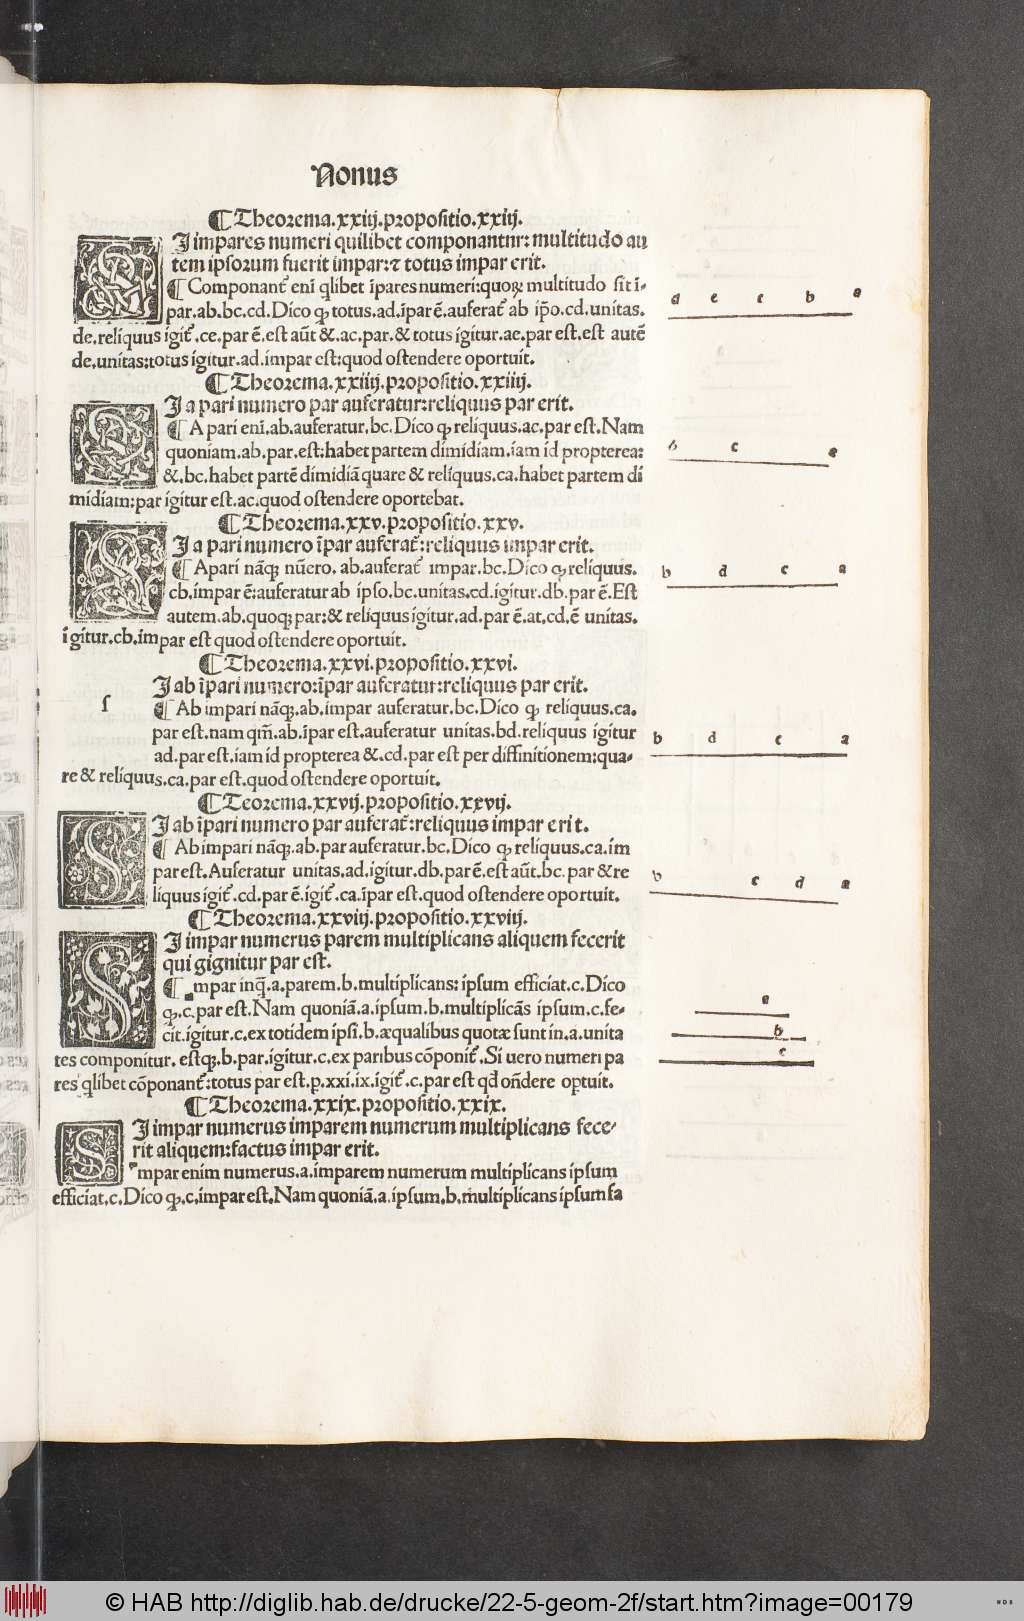 Nonus
¶Theorema.xxiij.propositio.xxiij.
SI impares numeri quilibet componantur: multitudo au
tem ipsorum fuerit impar:⁊ totus impar erit.
¶Componant᷑ enī q̄libet īpares numeri:quoꝝ multitudo sit ī-
par.ab.bc.cd.Dico ꝙ totus.ad.īpar ē.auferat᷑ ab ip̄o.cd.unitas.
de.reliquus igit᷑.ce.par ē.est aūt &.ac.par.& totus igitur.ae.par est.est autē
de.unitas:totus igitur.ad.impar est:quod ostendere oportuit.
¶Theorema.xxiiij.propositio.xxiiij.
SI a pari numero par auferatur:reliquus par erit.
¶A pari enī.ab.auferatur,bc.Dico ꝙ reliquus.ac.par est.Nam
quoniam.ab.par.est:habet partem dimidiam.iam id propterea:
&.bc.habet partē dimidiā quare & reliquus.ca.habet partem di
midiam:par igitur est.ac.quod ostendere oportebat.
¶Theorema.xxv.propositio.xxv.
SI a pari numero īpar auferat᷑:reliquus impar erit.
¶Apari nāꝗ nūero.ab.auferat᷑ impar.bc.Dico ꝙ reliquus.
cb.impar ē:auferatur ab ipso.bc.unitas.cd.igitur.db.par ē.Est
autem.ab.quoꝗ par:& reliquus igitur.ad.par ē.at.cd.ē unitas.
īgitur.cb.impar est quod ostendere oportuit.
¶Theorema.xxvi.propositio.xxvi.
SI ab īpari numero:īpar auferatur:reliquus par erit.
¶Ab impari nāꝗ.ab.impar auferatur.bc.Dico ꝙ reliquus.ca.
par est.nam qm̄.ab.īpar est.auferatur unitas.bd.reliquus igitur
ad.par est.iam id propterea &.cd.par est per diffinitionem:qua-
re & reliquus.ca.par est.quod ostendere oportuit.
¶Teorema.xxvij.propositio.xxvij.
SI ab īpari numero par auferat᷑:reliquus impar erit.
¶Ab impari nāꝗ.ab.par auferatur.bc.Dico ꝙ reliquus.ca.im
par est.Auferatur unitas.ad.igitur.db.par ē.est aūt.bc.par & re
liquus igit᷑.cd.par ē.igit᷑.ca.īpar est.quod ostendere oportuit.
¶Theorema.xxviij.propositio.xxviij.
SI impar numerus parem multiplicans aliquem fecerit
qui gignitur par est.
¶mpar inq̄.a.parem.b.multiplicans: ipsum efficiat.c.Dico
ꝙ.c.par est.Nam quoniā.a.ipsum.b.multiplicās ipsum.c.fe-
cit.igitur.c.ex totidem ipsi.b.æqualibus quotæ sunt in.a.unita
tes componitur. estꝗ.b.par.igitur.c.ex paribus cōponit᷑.Si uero numeri pa
res q̄libet cōponant᷑:totus par est.ꝑ.xxi.ix.igit᷑.c.par est qđ on̄dere oꝑtuit.
¶Theorema.xxix.propositio.xxix.
SI impar numerus imparem numerum multiplicans fece-
rit aliquem:factus impar erit.
mpar enim numerus.a.imparem numerum multiplicans ipsum
efficiat.c.Dico ꝙ.c.impar est.Nam quoniā.a.ipsum.b.multiplicans ipsum fa
d e c b a
b c a
b d c a
b d c a
b c d a
a
b
c
© HAB http://diglib.hab.de/drucke/22-5-geom-2f/start.htm?image=00179